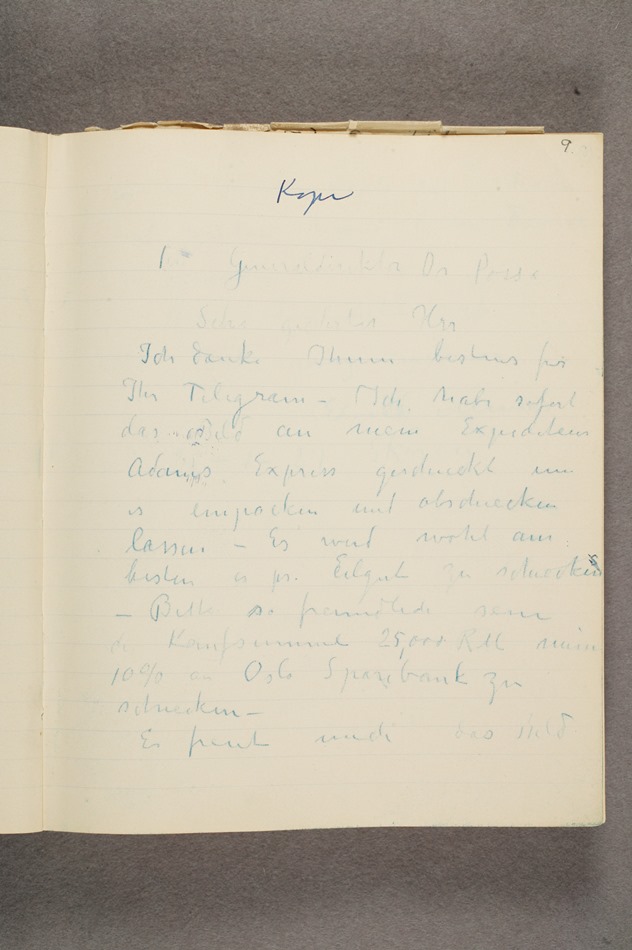 9.
Kopi
Generaldirektor Dr Posse
Sehr geehrter Herr
Ich danke Ihnen bestens für
Ihr Telegram – Ich habe sofort
das Bild an mein Expediteur
Adams Express geschickt um
es einpacken und abschicken
lassen – Es wird wohl am
besten es pr. Eilgut zu schicken
– Bitte so freundlich sein
die Kaufsumme 25,000 RM minus
10% an Oslo Sparebank zu
schicken –
Es freut mich das Bild